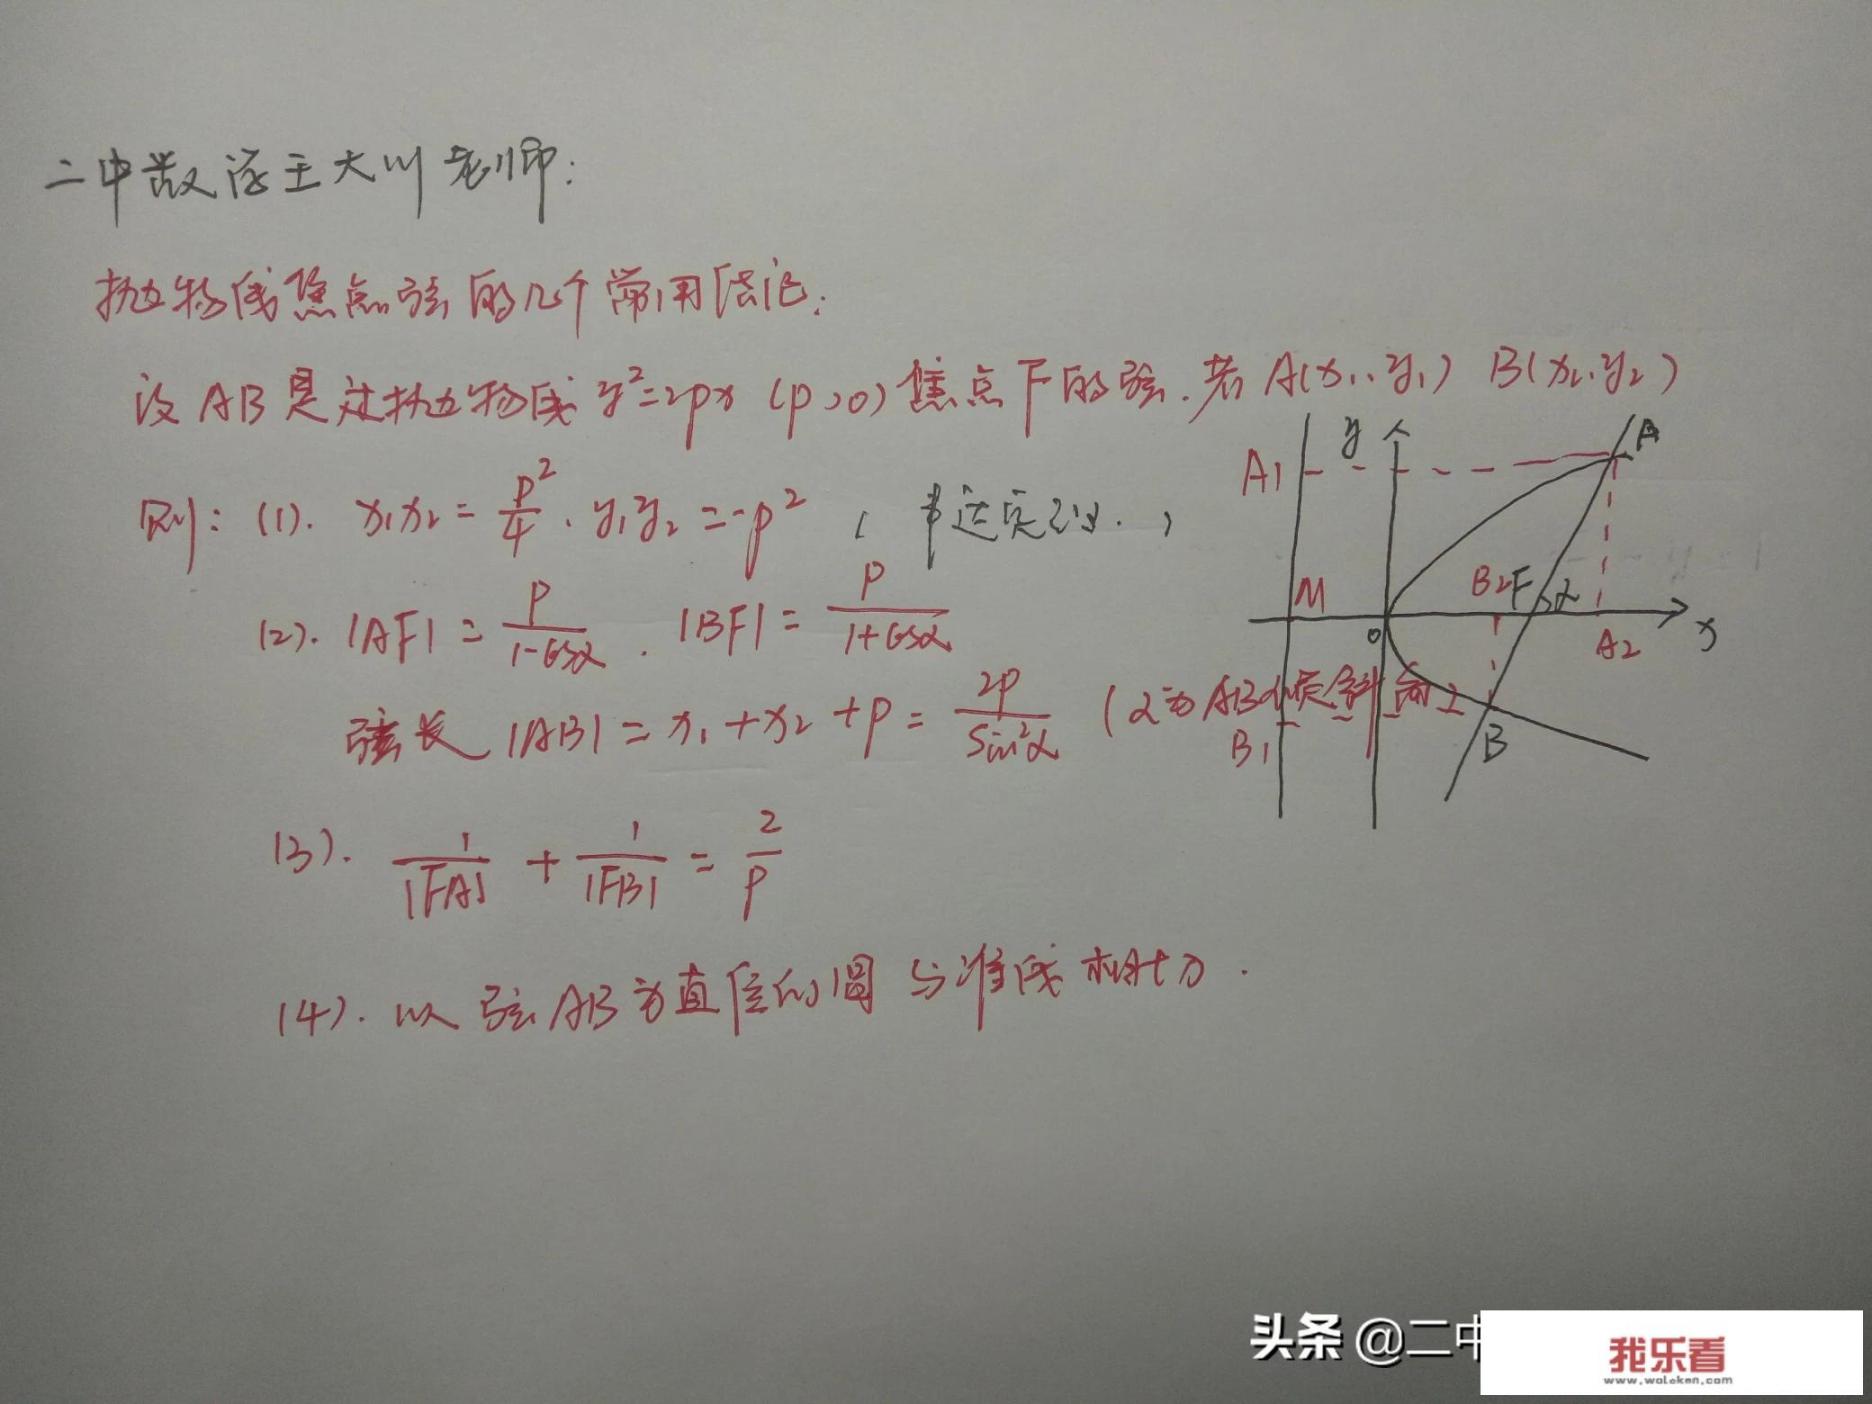 二中数学王大川老师:
抛物线焦点弦的几个常用结论:
设AB是过抛物线 y²=2px (p>0) 焦点F的弦.若 A(x₁,y₁) B(x₂,y₂)
则: (1). x₁x₂ = p²/4 . y₁y₂ = -p² (韦达定理.)
(2). |AF| = p/(1-cosα) . |BF| = p/(1+cosα)
弦长 |AB| = x₁ + x₂ + p = 2p/sin²α (α为AB倾斜角)
(3). 1/|FA| + 1/|FB| = 2/p
(4). 以弦AB为直径的圆与准线相切.
y
A
A1
M
B2
F
α
O
A2
x
B1
B
头条 @二中
我乐看
www.woleken.com